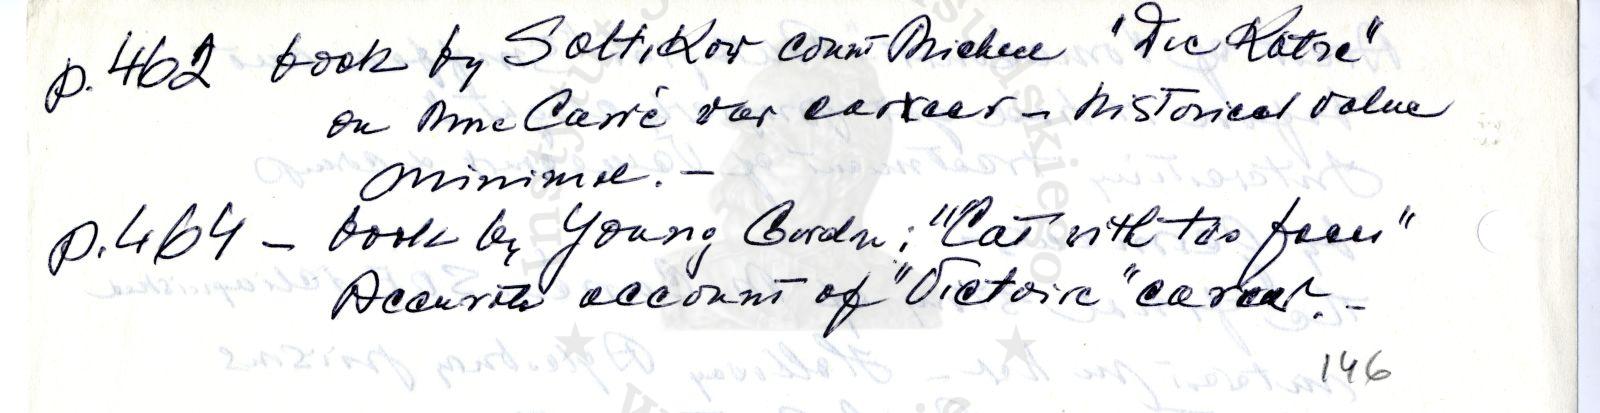 p.462 book by Soltikow count Michael "Die Katze"
on Mme Carré war carreer – historical value
minimal. –
p.464 – book by Young Gordon; "Cat with two faces"
Accurate account of "Victoire" career. –
146